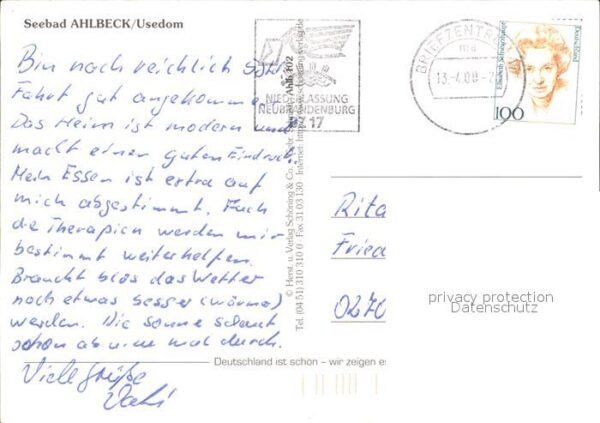 Seebad AHLBECK/Usedom
Bin nach reichlich 5 Std
Fahrt gut angekommen.
Das Heim ist modern und
macht einen guten Eindruck.
Mein Essen ist extra auf
mich abgestimmt. Auch
die Therapien werden mir
bestimmt weiterhelfen.
Braucht blos das Wetter
noch etwas besser (wärmer)
werden. Die Sonne schaut
schon ab u. zu mal durch.
Viele Grüße
NIEDERLASSUNG
NEUBRANDENBURG
BZ 17
BRIEFZENTRUM
Deutschland
100
© Herst. u. Verlag Schöning & Co.
Ahlb 102
Tel. (04 51) 310 310 0 · Fax 31 03 130 · Internet:
Rita
Fried
0270
privacy protection
Datenschutz
Deutschland ist schön – wir zeigen es